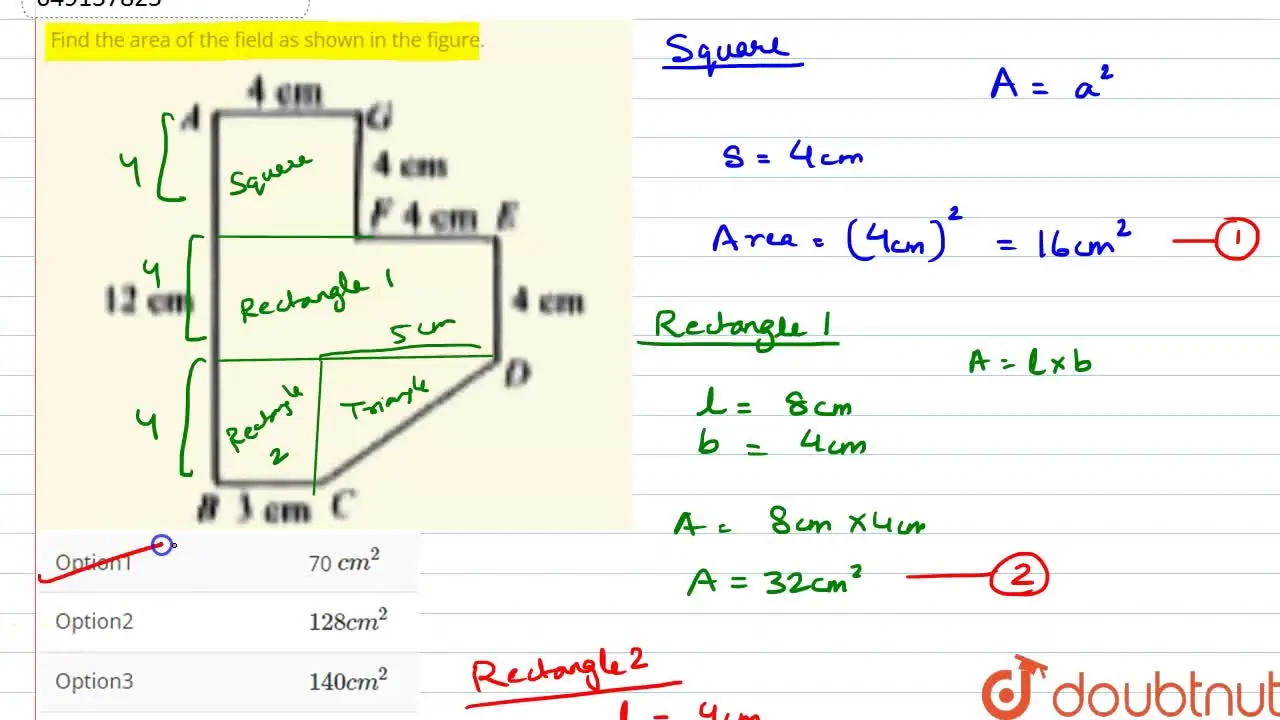 649157825
Find the area of the field as shown in the figure.
4 cm
A
G
4
Square
4 cm
F 4 cm E
4
12 cm
Rectangle 1
4 cm
5 cm
D
4
Rectangle
2
Triangle
B 3 cm C
Option1 70 cm²
Option2 128cm²
Option3 140cm²
Square
A = a²
s = 4cm
Area = (4cm)² = 16cm² — 1
Rectangle 1
A = l x b
l = 8cm
b = 4cm
A = 8cm x 4cm
A = 32cm² — 2
Rectangle 2
l = 4cm
doubtnut